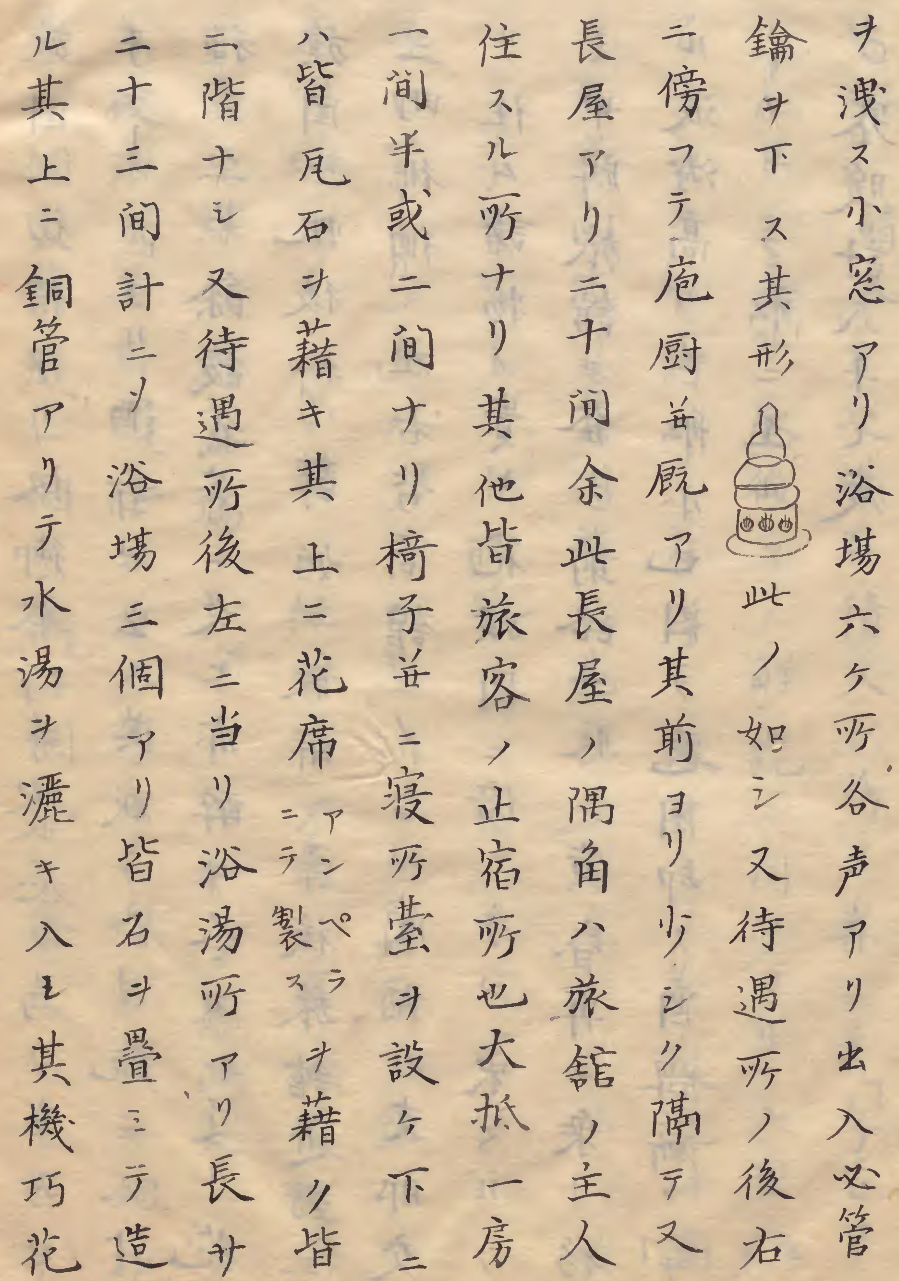 ヲ洩ス小窓アリ浴場六ケ所各声アリ出入必管
鑰ヲ下ス其形此ノ如シ又待遇所ノ後右
ニ傍フテ庖厨並厩アリ其前ヨリ少シク隔テ又
長屋アリ二十間余此長屋ノ隅角ハ旅舘ノ主人
住スル所ナリ其他皆旅客ノ止宿所也大抵一房
一間半或二間ナリ椅子並ニ寝所䑓ヲ設ケ下ニ
ハ皆瓦石ヲ藉キ其上ニ花席アンペラニテ製スヲ藉ク皆
二階ナシ又待遇所後左ニ当リ浴湯所アリ長サ
二十三間計ニメ浴場三個アリ皆石ヲ畳ミテ造
ル其上ニ銅管アリテ水湯ヲ灑キ入モ其機巧花